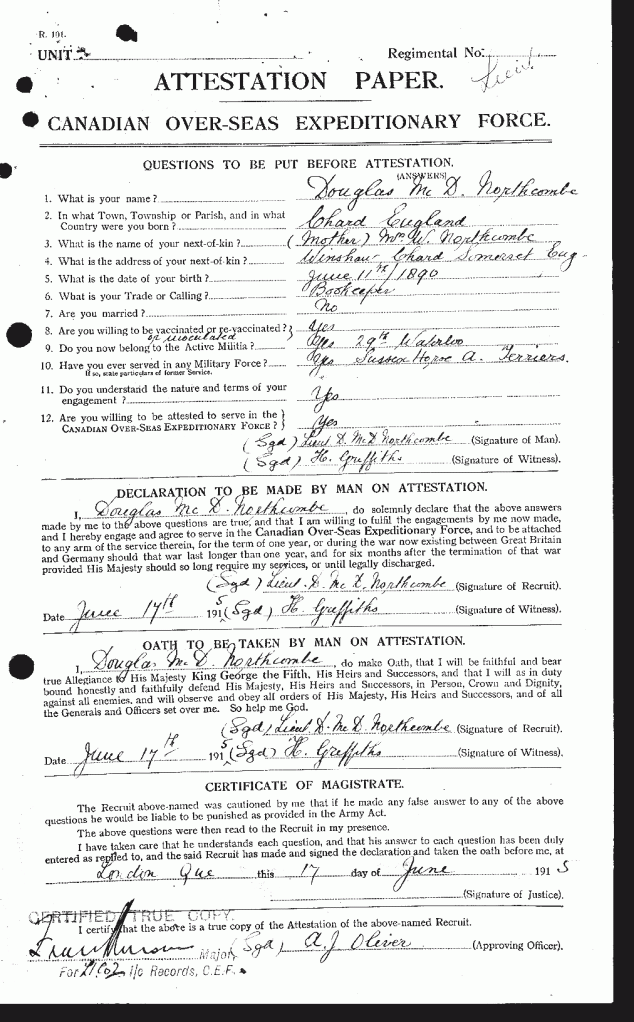 R. 101.
UNIT
Regimental No. Lieut.
ATTESTATION PAPER.
CANADIAN OVER-SEAS EXPEDITIONARY FORCE.
QUESTIONS TO BE PUT BEFORE ATTESTATION.
(ANSWERS)
1. What is your name? Douglas Mc D. Northcombe
2. In what Town, Township or Parish, and in what
Country were you born? Chard England
3. What is the name of your next-of-kin? (Mother) Mrs W. Northcombe
4. What is the address of your next-of-kin? Winshaw Chard Somerset Eng.
5. What is the date of your birth? June 11th/1890
6. What is your Trade or Calling? Bookeeper
7. Are you married? No
8. Are you willing to be vaccinated or re-vaccinated? Yes
or inoculated
9. Do you now belong to the Active Militia? Yes 29th Waterloo
10. Have you ever served in any Military Force? Yes Sussex Horse A. Terriers.
If so, state particulars of former Service.
11. Do you understand the nature and terms of your
engagement? Yes
12. Are you willing to be attested to serve in the
CANADIAN OVER-SEAS EXPEDITIONARY FORCE? Yes
(Sgd) Lieut D. McD Northcombe (Signature of Man).
(Sgd) H. Griffiths (Signature of Witness).
DECLARATION TO BE MADE BY MAN ON ATTESTATION.
I, Douglas Mc D. Northcombe, do solemnly declare that the above answers
made by me to the above questions are true, and that I am willing to fulfil the engagements by me now made,
and I hereby engage and agree to serve in the Canadian Over-Seas Expeditionary Force, and to be attached
to any arm of the service therein, for the term of one year, or during the war now existing between Great Britain
and Germany should that war last longer than one year, and for six months after the termination of that war
provided His Majesty should so long require my services, or until legally discharged.
(Sgd) Lieut. D. Mc D, Northcombe (Signature of Recruit).
Date June 17th 1915 (Sgd) H. Griffiths (Signature of Witness).
OATH TO BE TAKEN BY MAN ON ATTESTATION.
I, Douglas Mc D. Northcombe, do make Oath, that I will be faithful and bear
true Allegiance to His Majesty King George the Fifth, His Heirs and Successors, and that I will as in duty
bound honestly and faithfully defend His Majesty, His Heirs and Successors, in Person, Crown and Dignity,
against all enemies, and will observe and obey all orders of His Majesty, His Heirs and Successors, and of all
the Generals and Officers set over me. So help me God.
(Sgd) Lieut D. Mc D. Northcombe (Signature of Recruit).
Date June 17th 1915 (Sgd) H. Griffiths (Signature of Witness).
CERTIFICATE OF MAGISTRATE.
The Recruit above-named was cautioned by me that if he made any false answer to any of the above
questions he would be liable to be punished as provided in the Army Act.
The above questions were then read to the Recruit in my presence.
I have taken care that he understands each question, and that his answer to each question has been duly
entered as replied to, and the said Recruit has made and signed the declaration and taken the oath before me, at
London Que this 17 day of June 1915
(Signature of Justice).
CERTIFIED TRUE COPY.
I certify that the above is a true copy of the Attestation of the above-named Recruit.
Major, (Sgd) A. J Oliver (Approving Officer).
For i/c Records, C.E.F.